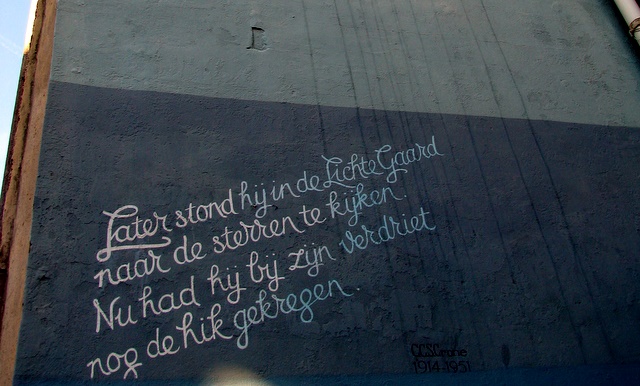 Later stond hij in de Lichte Gaard
naar de sterren te kijken.
Nu had hij bij zijn verdriet
nog de hik gekregen.
C.C.S. Crone
1914-1951